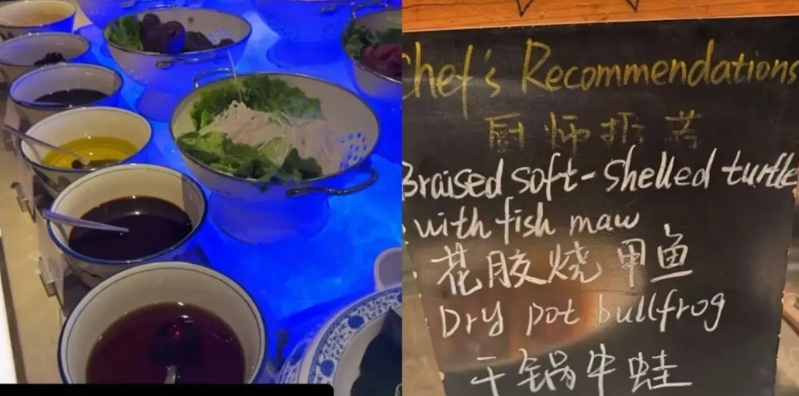 Chef's Recommendations
厨师推荐
Braised soft-shelled turtle
with fish maw
花胶烧甲鱼
Dry pot bullfrog
干锅牛蛙